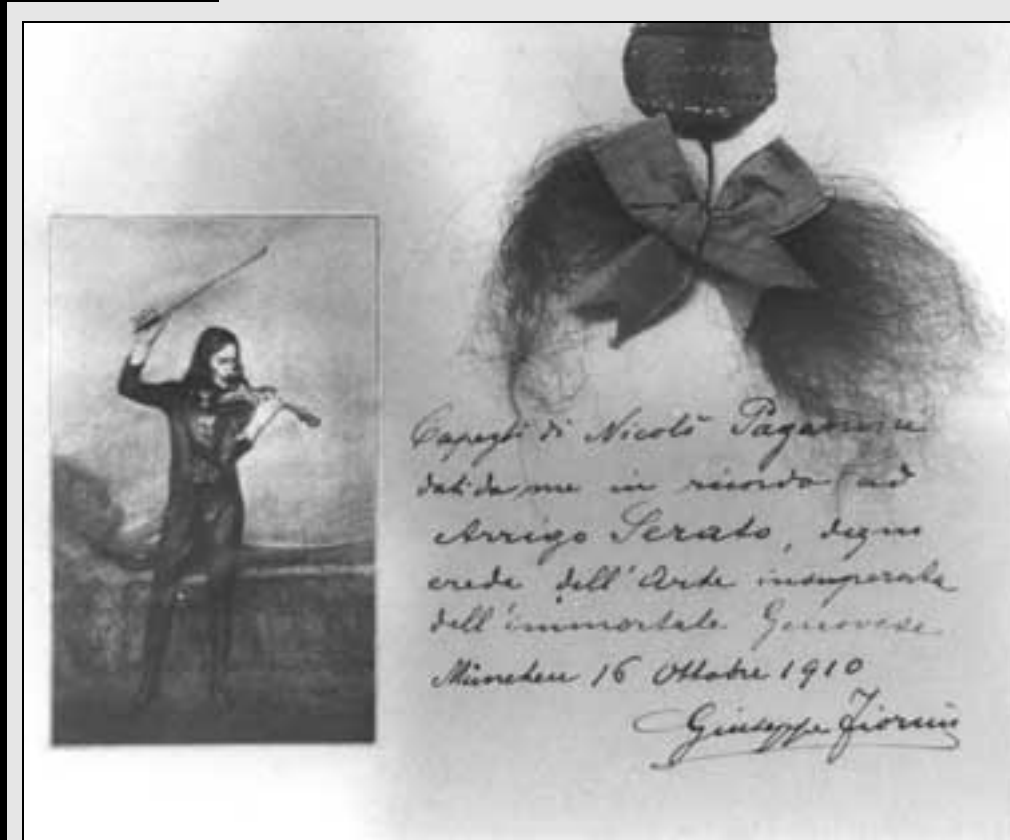 Capegli di Nicolò Paganini
dati da me in ricordo ad
Arrigo Serato, degno
erede dell'Arte insuperata
dell'immortale Genovese
München 16 Ottobre 1910
Giuseppe Fiorini